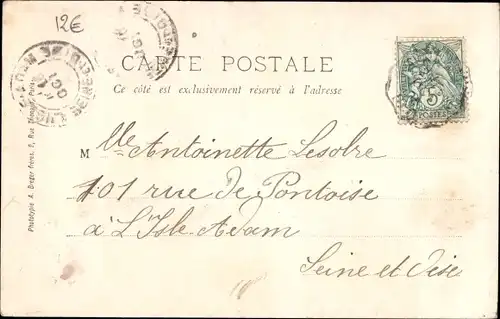 12€
CARTE POSTALE
Ce côté est exclusivement réservé à l'adresse
5
POSTES
Mlle Antoinette Lesobre
101 rue de Pontoise
à L'Isle Adam
Seine et Oise
Phototypie A. Breger frères, 9, Rue Thénard, Paris